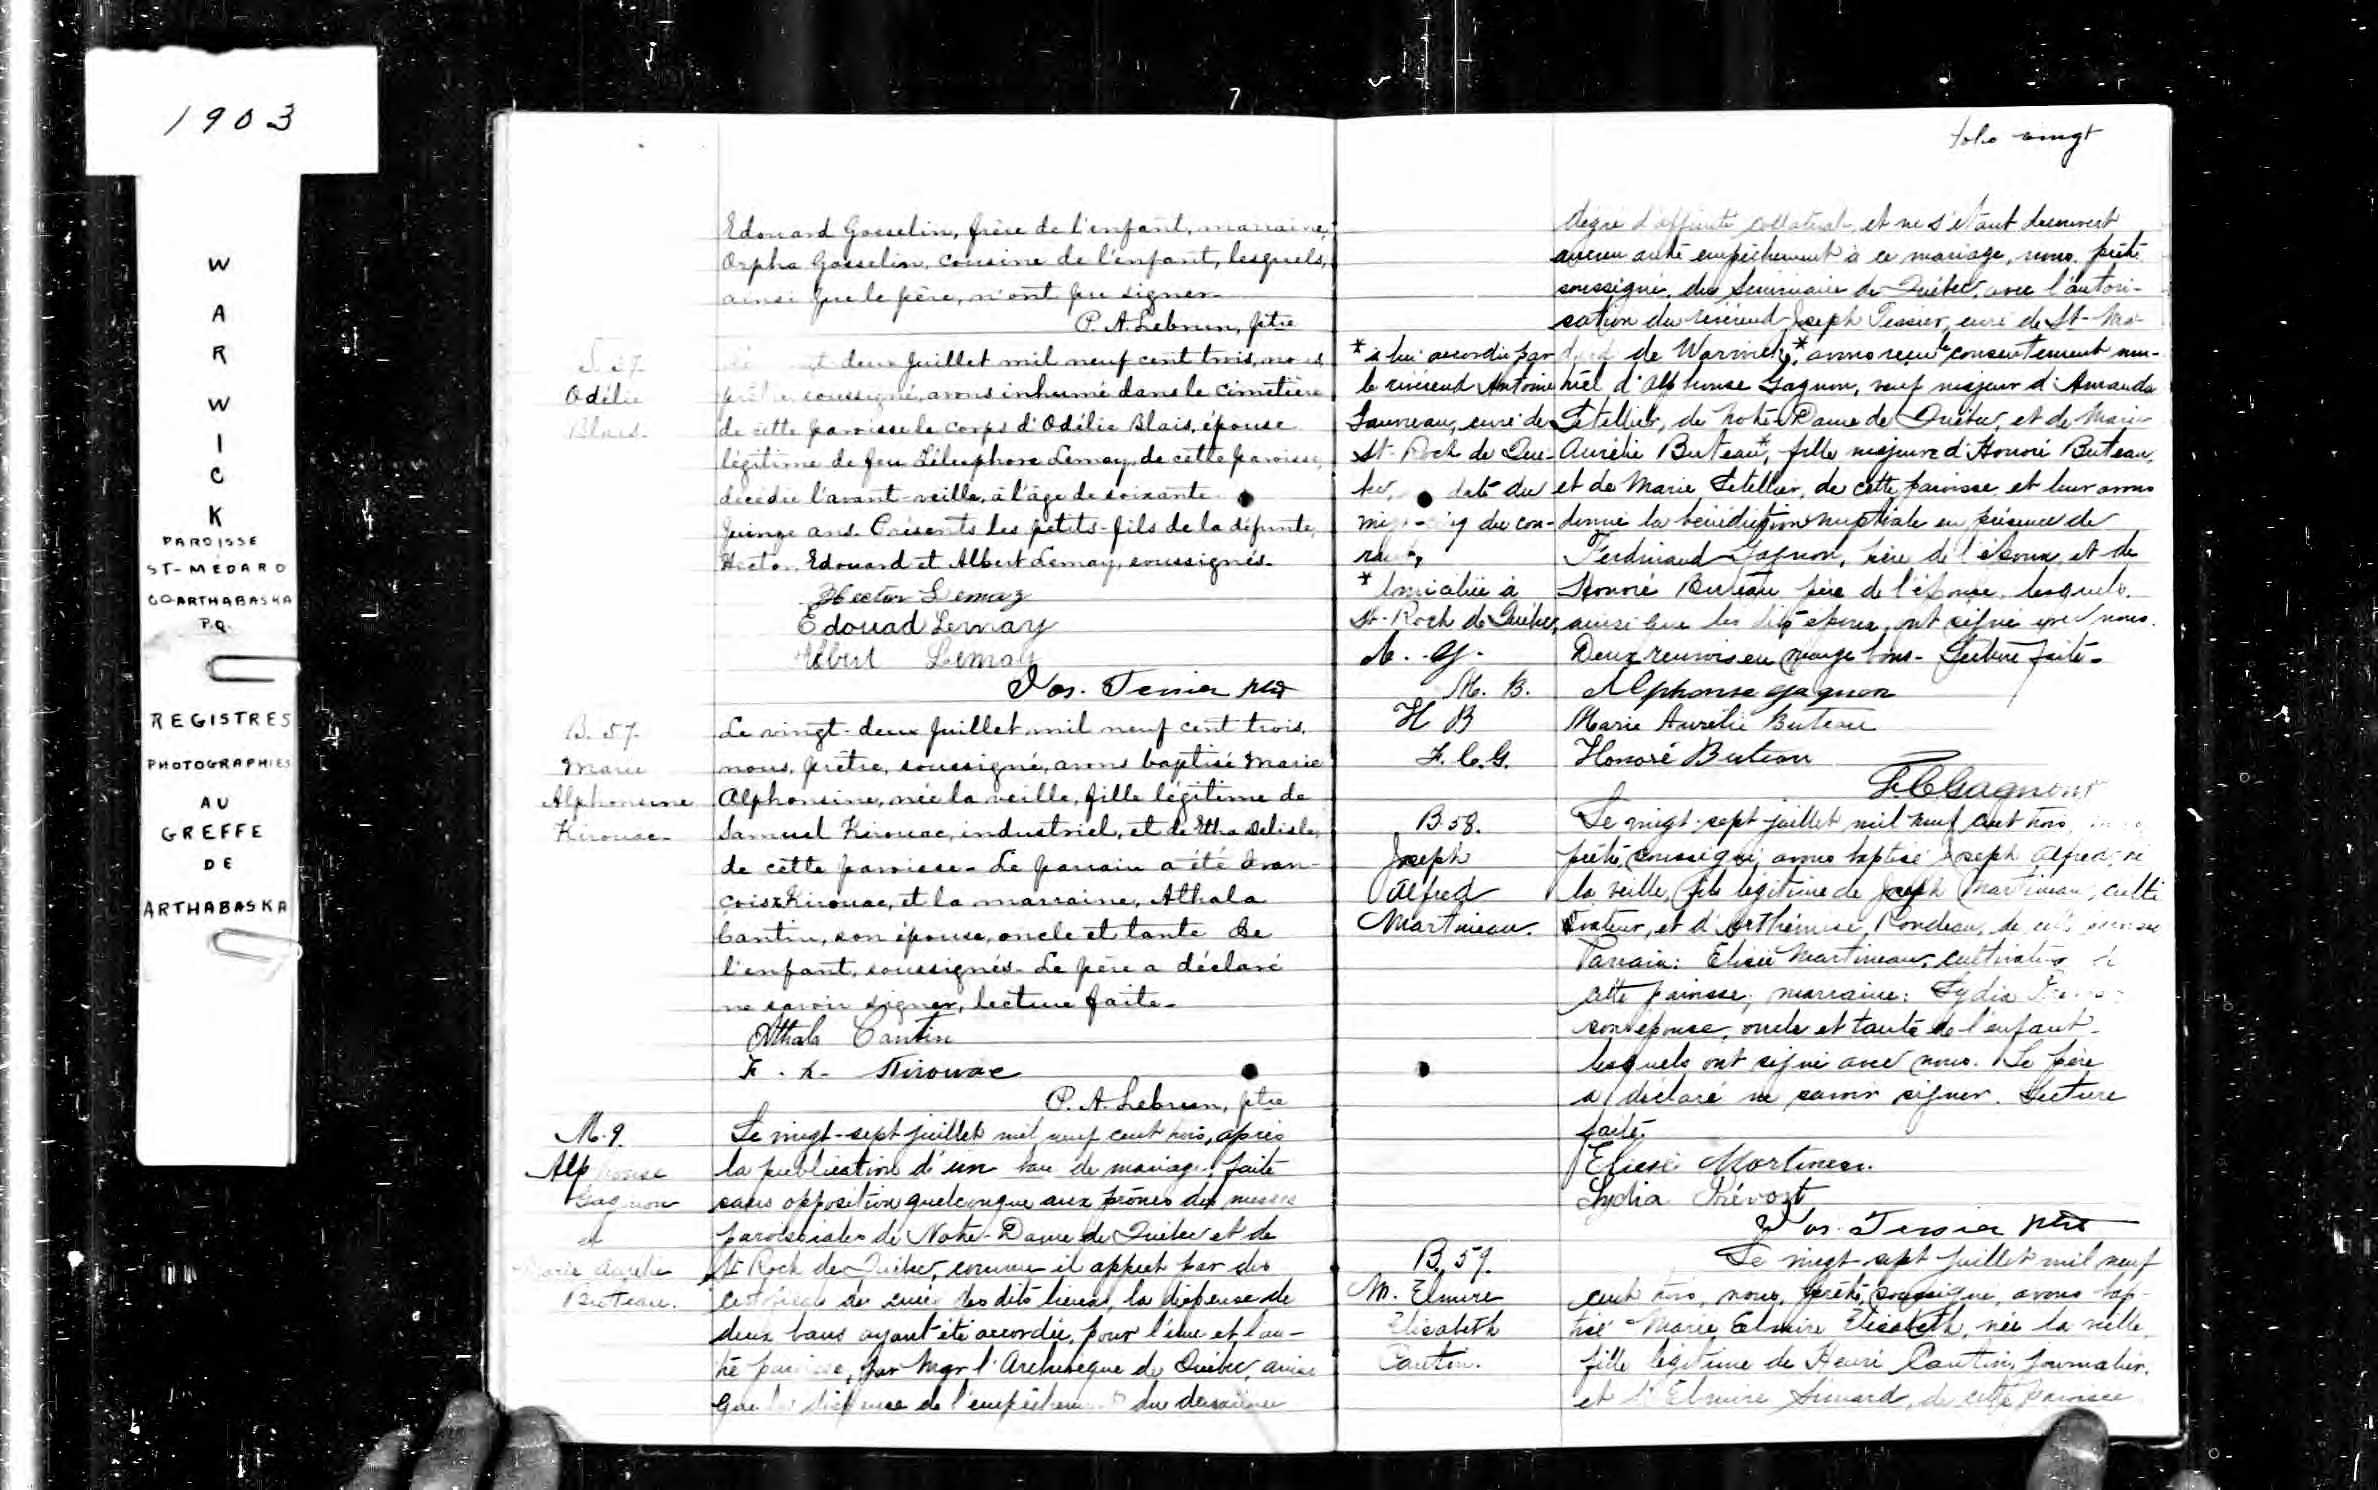 1903
WARWICK
PAROISSE
ST-MÉDARD
CO ARTHABASKA
P.Q.
REGISTRES
PHOTOGRAPHIES
AU
GREFFE
DE
ARTHABASKA
7
Edouard Gosselin, frère de l'enfant, marraine,
Orpha Gosselin, cousine de l'enfant, lesquels,
ainsi que le père, n'ont pu signer.
P. A. Lebrun, ptre
S. 27.
Odélie
Blais.
deux Juillet mil neuf cent trois, nous,
prêtre soussigné, avons inhumé dans le cimetière
de cette paroisse le corps d'Odélie Blais, épouse
légitime de feu Télesphore Lemay, de cette paroisse,
décédée l'avant-veille, à l'âge de soixante
quinze ans. Présents les petits-fils de la défunte,
Hector, Edouard et Albert Lemay, soussignés.
Hector Lemay
Edouad Lemay
Albert Lemay
Jos. Tessier ptre
B. 57.
Marie
Alphonsine
Kirouac
Le vingt-deux Juillet mil neuf cent trois,
nous, prêtre, soussigné, avons baptisé Marie
Alphonsine, née la veille, fille légitime de
Samuel Kirouac, industriel, et de Etha Delisle,
de cette paroisse. Le parrain a été Fran-
çois Kirouac, et la marraine, Athala
Cantin, son épouse, oncle et tante de
l'enfant, soussignés. Le père a déclaré
ne savoir signer, lecture faite.
Athala Cantin
F. X. Kirouac
P. A. Lebrun, ptre
M. 9.
Alphonse
Gagnon
et
Marie Aurélie
Buteau.
Le vingt-sept juillet mil neuf cent trois, après
la publication d'un ban de mariage, faite
sans opposition quelconque aux prônes des messes
paroissiales de Notre-Dame de Québec et de
St Roch de Québec, comme il appert par des
certificats des curés des dits lieux, la dispense de
deux bans ayant été accordée, pour l'une et l'au-
tre paroisse, par Mgr l'Archevêque de Québec, ainsi
que la dispense de l'empêchement du deuxième
folio vingt
degré d'affinité collatérale, et ne s'étant découvert
aucun autre empêchement à ce mariage, nous, prêtre
soussigné, du Séminaire de Québec, avec l'autori-
sation du révérend Joseph Tessier, curé de St-Mé-
dard de Warwick,* avons reçu le consentement mu-
tuel d'Alphonse Gagnon, veuf majeur d'Amanda
Letellier, de Notre-Dame de Québec, et de Marie
Aurélie Buteau*, fille majeure d'Honoré Buteau,
et de Marie Letellier, de cette paroisse, et leur avons
donné la bénédiction nuptiale en présence de
Ferdinand Gagnon, frère de l'époux, et de
Honoré Buteau père de l'épouse, lesquels,
ainsi que les dits époux, ont signé avec nous.
Deux renvois en marge bons. Lecture faite.
* à lui accordée par
le révérend Antoine
Gauvreau, curé de
St-Roch de Qué-
bec, date du
vingt-cinq du cou-
rant,
* domiciliée à
St-Roch de Québec,
A. G.
M. B.
H B
F. C. G.
Alphonse Gagnon
Marie Aurélie Buteau
Honoré Buteau
F C Gagnon
B 58.
Joseph
Alfred
Martineau.
Le vingt-sept juillet mil neuf cent trois,
prêtre soussigné, avons baptisé Joseph Alfred, né
la veille, fils légitime de Joseph Martineau, culti
vateur, et d'Arthémise Rondeau, de cette paroisse
Parrain: Elisée Martineau, cultivateur de
cette paroisse, marraine: Lydia
son épouse, oncle et tante de l'enfant.
lesquels ont signé avec nous. Le père
a déclaré ne savoir signer. Lecture
faite.
Elisée Martineau
Lydia Prévost
Jos. Tessier ptre
B. 59.
M. Elmire
Elisabeth
Cantin.
Le vingt-sept juillet mil neuf
cent trois, nous, prêtre, soussigné, avons bap-
tisé Marie Elmire Elisabeth, née la veille,
fille légitime de Henri Cantin, journalier,
et d'Elmire Simard, de cette paroisse